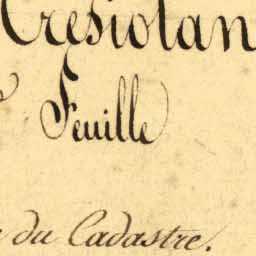 Tresiolan
Feuille
du Cadastre.